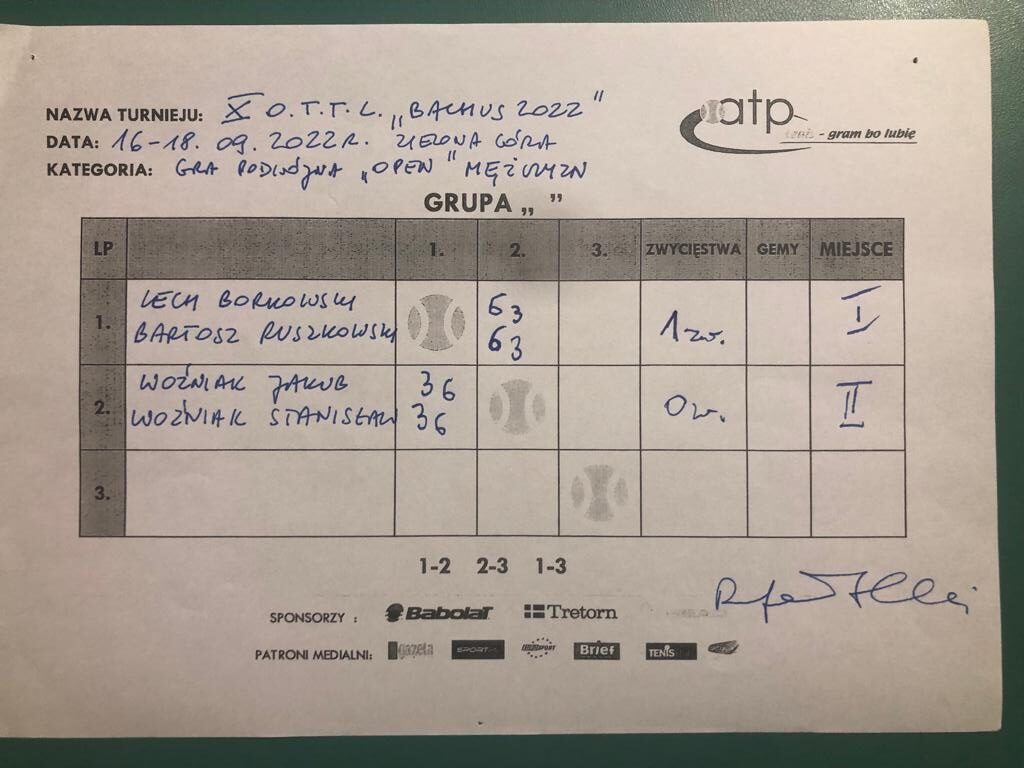 NAZWA TURNIEJU: X O.T.T.L. „BACHUS 2022"
DATA: 16-18.09.2022R. ZIELONA GÓRA
KATEGORIA: GRA PODWÓJNA „OPEN" MĘŻCZYZN
atp
tenis - gram bo lubię
GRUPA „ ”
LP 1. 2. 3. ZWYCIĘSTWA GEMY MIEJSCE
1. LECH BORKOWSKI 63 1 zw. I
BARTOSZ RUSZKOWSKI 63
2. WOŹNIAK JAKUB 36 0 zw. II
WOŹNIAK STANISŁAW 36
3.
1-2 2-3 1-3
SPONSORZY : Babolat Tretorn
PATRONI MEDIALNI: gazeta SPORT Brief TENIS